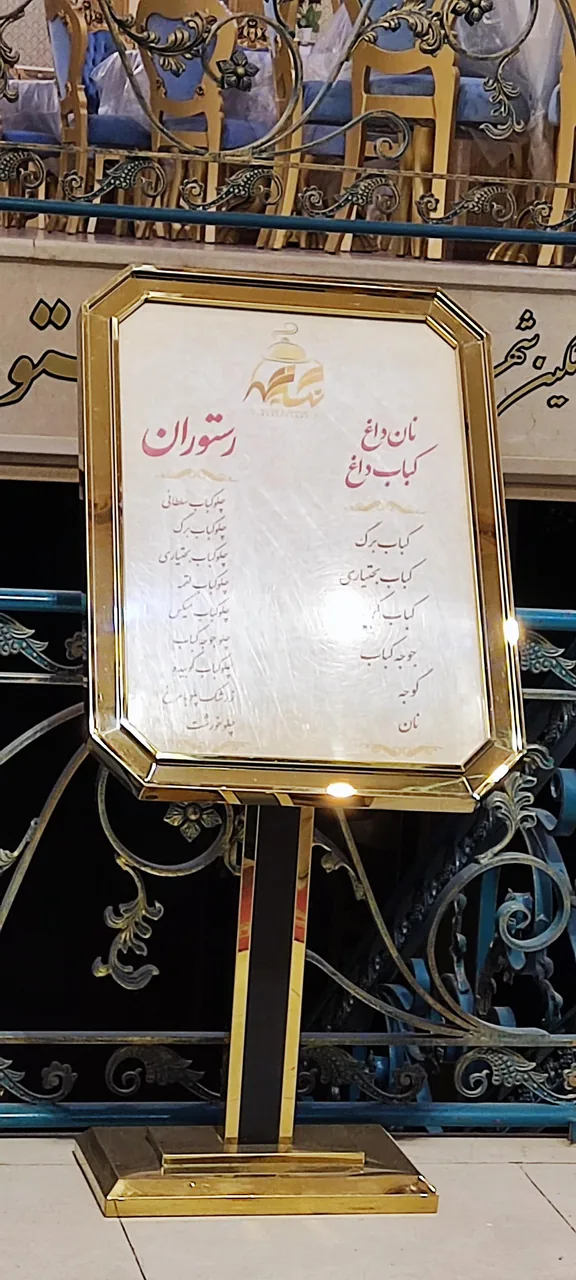 نان داغ
کباب داغ
کباب برگ
کباب بختیاری
کباب
جوجه کباب
گوجه
نان
رستوران
چلوکباب سلطانی
چلوکباب برگ
چلوکباب بختیاری
چلوکباب لقمه
چلوکباب میکس
چلو جوجه کباب
چلوکباب کوبیده
زرشک پلو با مرغ
چلو خورشت
نگین شهر